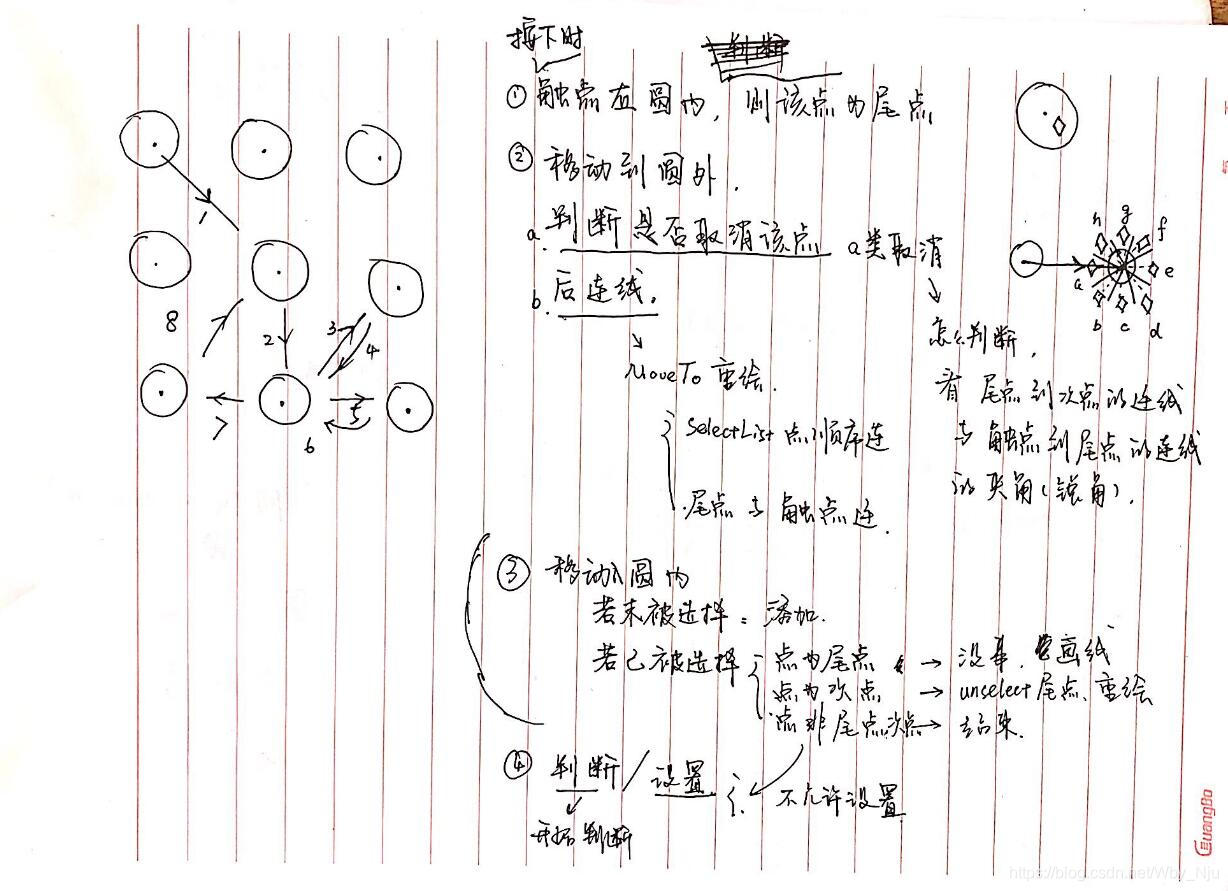 按下时
判断
① 触点在圆内，则该点为尾点
② 移动到圆外.
a. 判断是否取消该点 a类取消
b. 后连线.
MoveTo 重绘.
SelectList 点顺序连
尾点与触点连.
怎么判断,
看尾点到次点的连线
与触点到尾点的连线
的夹角(锐角).
③ 移动入圆内
若未被选择: 添加.
若已被选择
点为尾点 → 没事. 画线
点为次点 → unselect尾点、重绘
点非尾点次点 → 结束.
④ 判断/设置
不允许设置
开始判断
1
2
3
4
5
6
7
8
h g f
a e
b c d
GuangBo
https://blog.csdn.net/Wby_Nju